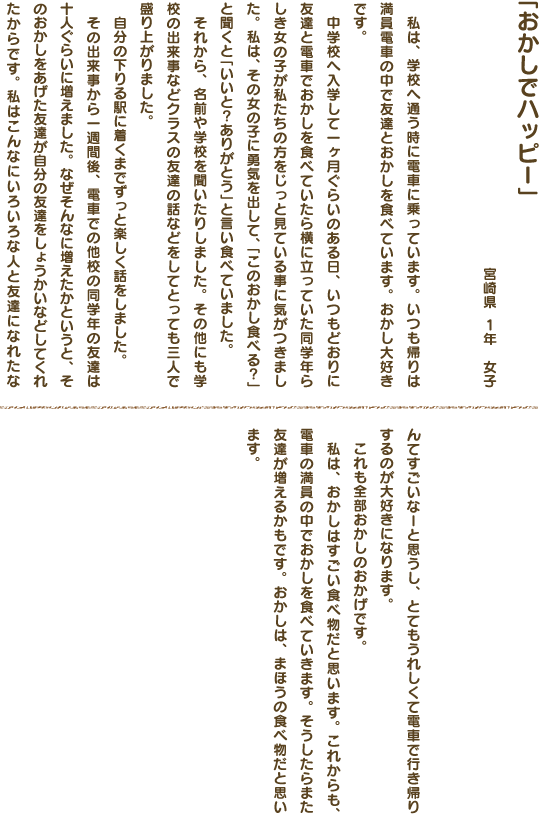 「おかしでハッピー」
宮崎県　1年　女子
　私は、学校へ通う時に電車に乗っています。いつも帰りは
満員電車の中で友達とおかしを食べています。おかし大好き
です。
　中学校へ入学して一ヶ月ぐらいのある日、いつもどおりに
友達と電車でおかしを食べていたら横に立っていた同学年ら
しき女の子が私たちの方をじっと見ている事に気がつきまし
た。私は、その女の子に勇気を出して、「このおかし食べる？」
と聞くと「いいと？ありがとう」と言い食べていました。
　それから、名前や学校を聞いたりしました。その他にも学
校の出来事などクラスの友達の話などをしてとっても三人で
盛り上がりました。
　自分の下りる駅に着くまでずっと楽しく話をしました。
　その出来事から一週間後、電車での他校の同学年の友達は
十人ぐらいに増えました。なぜそんなに増えたかというと、そ
のおかしをあげた友達が自分の友達をしょうかいなどしてくれ
たからです。私はこんなにいろいろな人と友達になれたな
んてすごいなーと思うし、とてもうれしくて電車で行き帰り
するのが大好きになります。
　これも全部おかしのおかげです。
　私は、おかしはすごい食べ物だと思います。これからも、
電車の満員の中でおかしを食べていきます。そうしたらまた
友達が増えるかもです。おかしは、まほうの食べ物だと思い
ます。